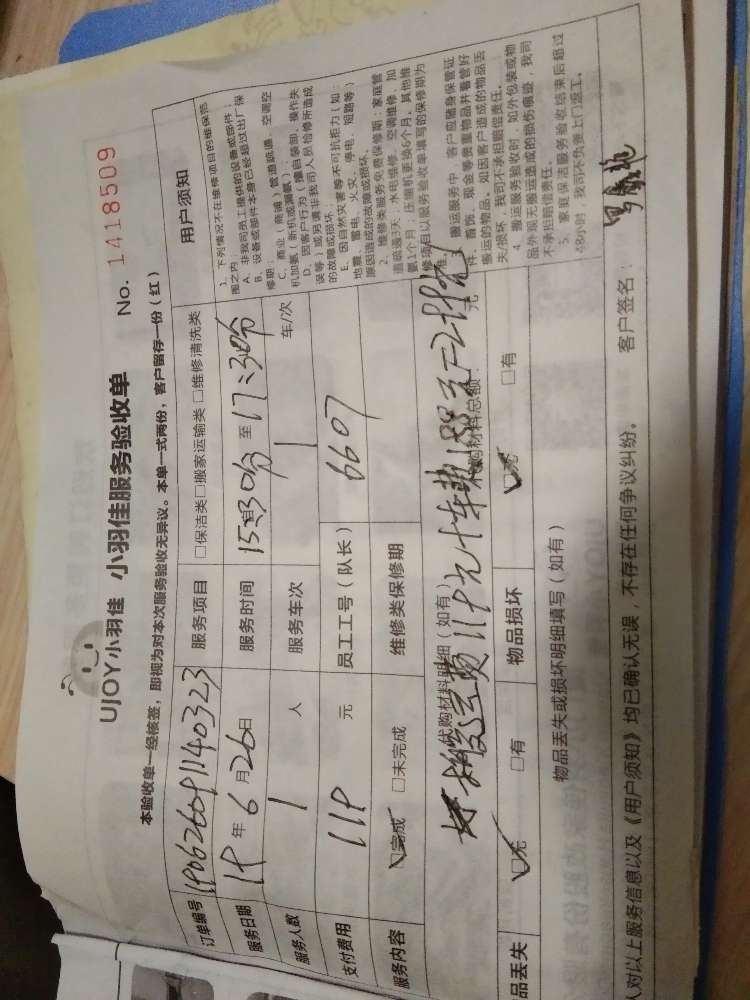 UJOY小羽佳 小羽佳服务验收单
No. 1418509
本验收单一经核签，即视为对本次服务验收无异议。本单一式两份，客户留存一份（红）
订单编号 服务项目 □保洁类□搬家运输类 □维修清洗类
服务日期 19 年 6 月 26 日 服务时间 15:30分 至 17:30分
服务人数 1 人 服务车次 1 车/次
支付费用 119 元 员工工号（队长） 6607
服务内容 ☑完成 □未完成 维修类保修期
代购材料明细（如有） 代购材料总额： 元
搬运费119元
品丢失 ☑无 □有 物品损坏 ☑无 □有
物品丢失或损坏明细填写（如有）
人对以上服务信息以及《用户须知》均已确认无误，不存在任何争议纠纷。 客户签名：
用户须知
1、下列情况不在维修项目的维保范
围之内：
A、非我司员工提供的设备或部件；
B、设备或部件本身已经超过出厂保
修期；
C、商业（商铺）管道疏通、空调空
机加氨（新机或漏氨）；
D、因客户行为（擅自装卸、操作失
误等）或另请非我司人员检修所造成
的故障或损坏；
E、因自然灾害等不可抗拒力（如：
地震、雷电、火灾、停电、短路等）
原因造成的故障或损坏。
2、维修类服务免费保修期：家庭管
道疏通3天；水电维修、空调维修、加
氨1个月；压缩机更换6个月，其他维
修项目以服务验收单填写的保修期为
准。
3、搬运服务中，客户应随身保管证
件、首饰、现金等贵重物品并看管好
搬运的物品。如因客方造成的物品丢
失/损坏，我司不承担赔偿责任。
4、搬运服务验收时，如外包装或物
品外观无搬运造成的损伤痕迹，我司
不承担赔偿责任。
5、家庭保洁服务验收结束后超过
48小时，我司不负责上门返工。